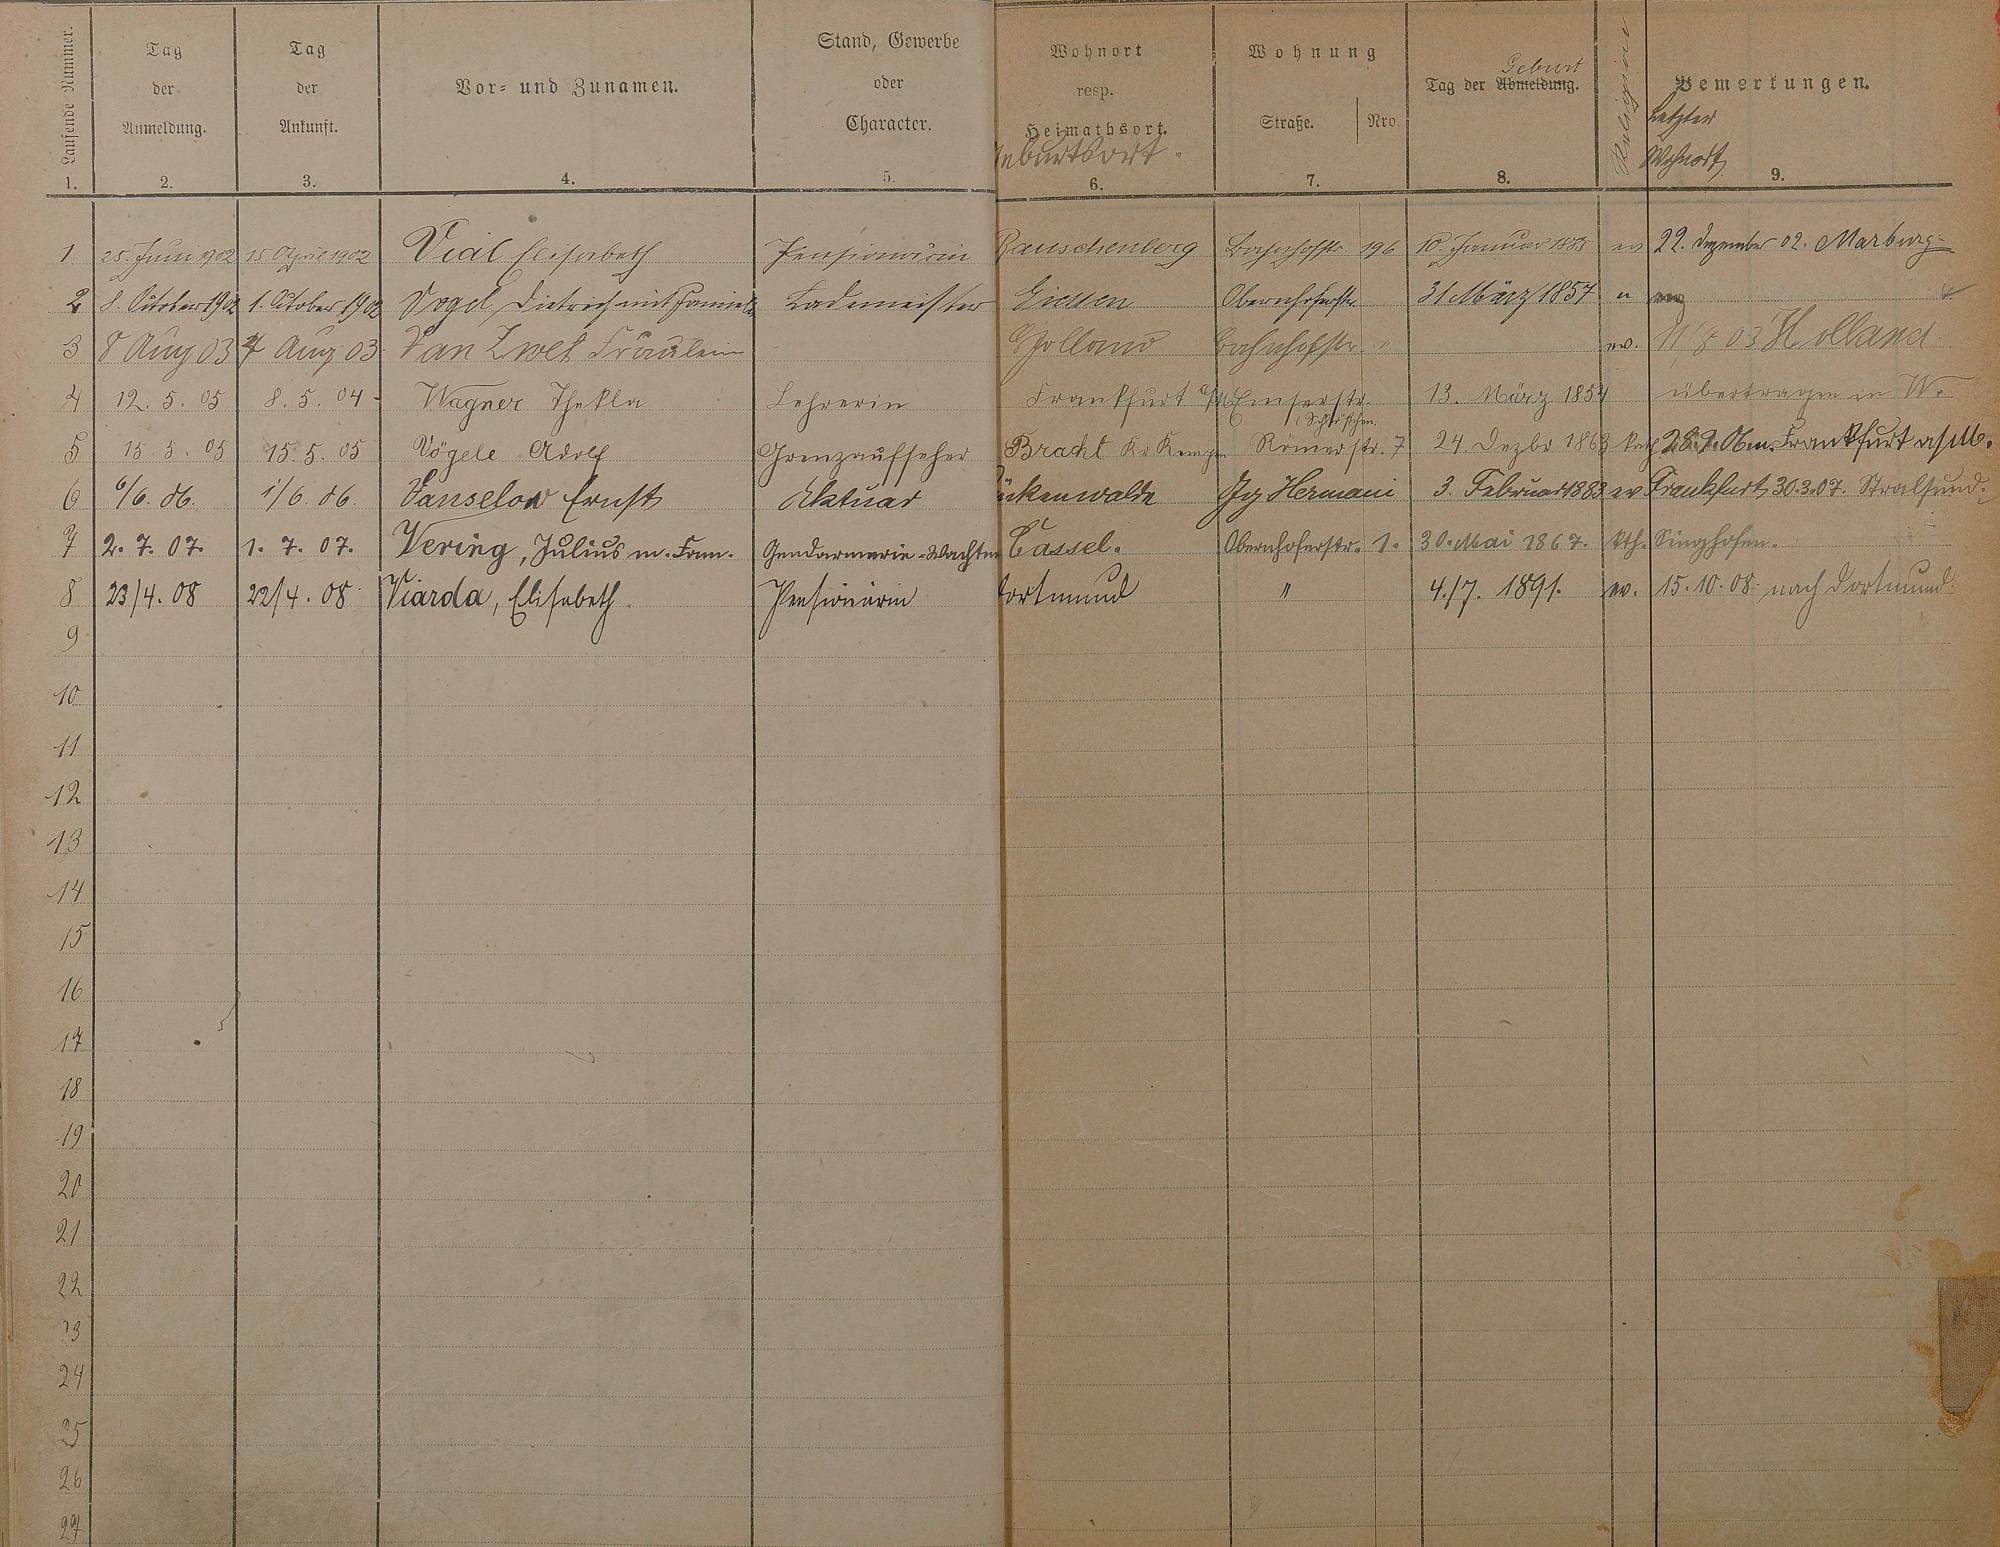 Laufende Nummer.
Tag der Anmeldung.
Tag der Ankunft.
Vor- und Zunamen.
Stand, Gewerbe oder Character.
Wohnort resp. Heimathsort.
Geburtsort.
Wohnung
Straße. Nro.
Tag der Abmeldung.
Geburt
Religion
Bemerkungen.
Letzter Wohnort
1. 2. 3. 4. 5. 6. 7. 8. 9.
1 25. Juni 1902 15 April 1902 Vial Elisabeth Pensionärin Rauschenberg Bahnhofstr. 196 10. Januar ev 22. Dezember 02. Marburg
2 8. October 1902 1. October 1902 Vogel, Dietrich mit Familie Lademeister Giessen Obernhoferstr. 31 März 1857 "
3 8 Aug 03 7 Aug 03 Van Zwet Fräulein Holland Bahnhofstr. " ev. 11/8 03 Holland.
4 12. 5. 05 8. 5. 04 Wagner Thekla Lehrerin Frankfurt a/M Emserstr. 13. März 1854 übertragen in W.
(Schlößchen.
5 15. 5. 05 15. 5. 05 Vögele Adolf Grenzaufseher Bracht Kr. Kempen Römerstr. 7 24. Dezbr 1863 kath 28.9.06 n. Frankfurt a/M.
6 6/6. 06. 1/6. 06. Vanselow Ernst Aktuar ückenwalde Hermani 3. Februar 1883 ev Frankfurt, 30.3.07. Stralsund.
7 2. 7. 07. 1. 7. 07. Vering, Julius m. Fam. Gendarmerie-Wachtm Cassel. Obernhoferstr. 1. 30. Mai 1867. kth. Singhofen.
8 23/4. 08 22/4. 08 Viarda, Elisabeth. Pensionärin Dortmund " 4./7. 1891. ev. 15. 10. 08. nach Dortmund.
9
10
11
12
13
14
15
16
17
18
19
20
21
22
23
24
25
26
27